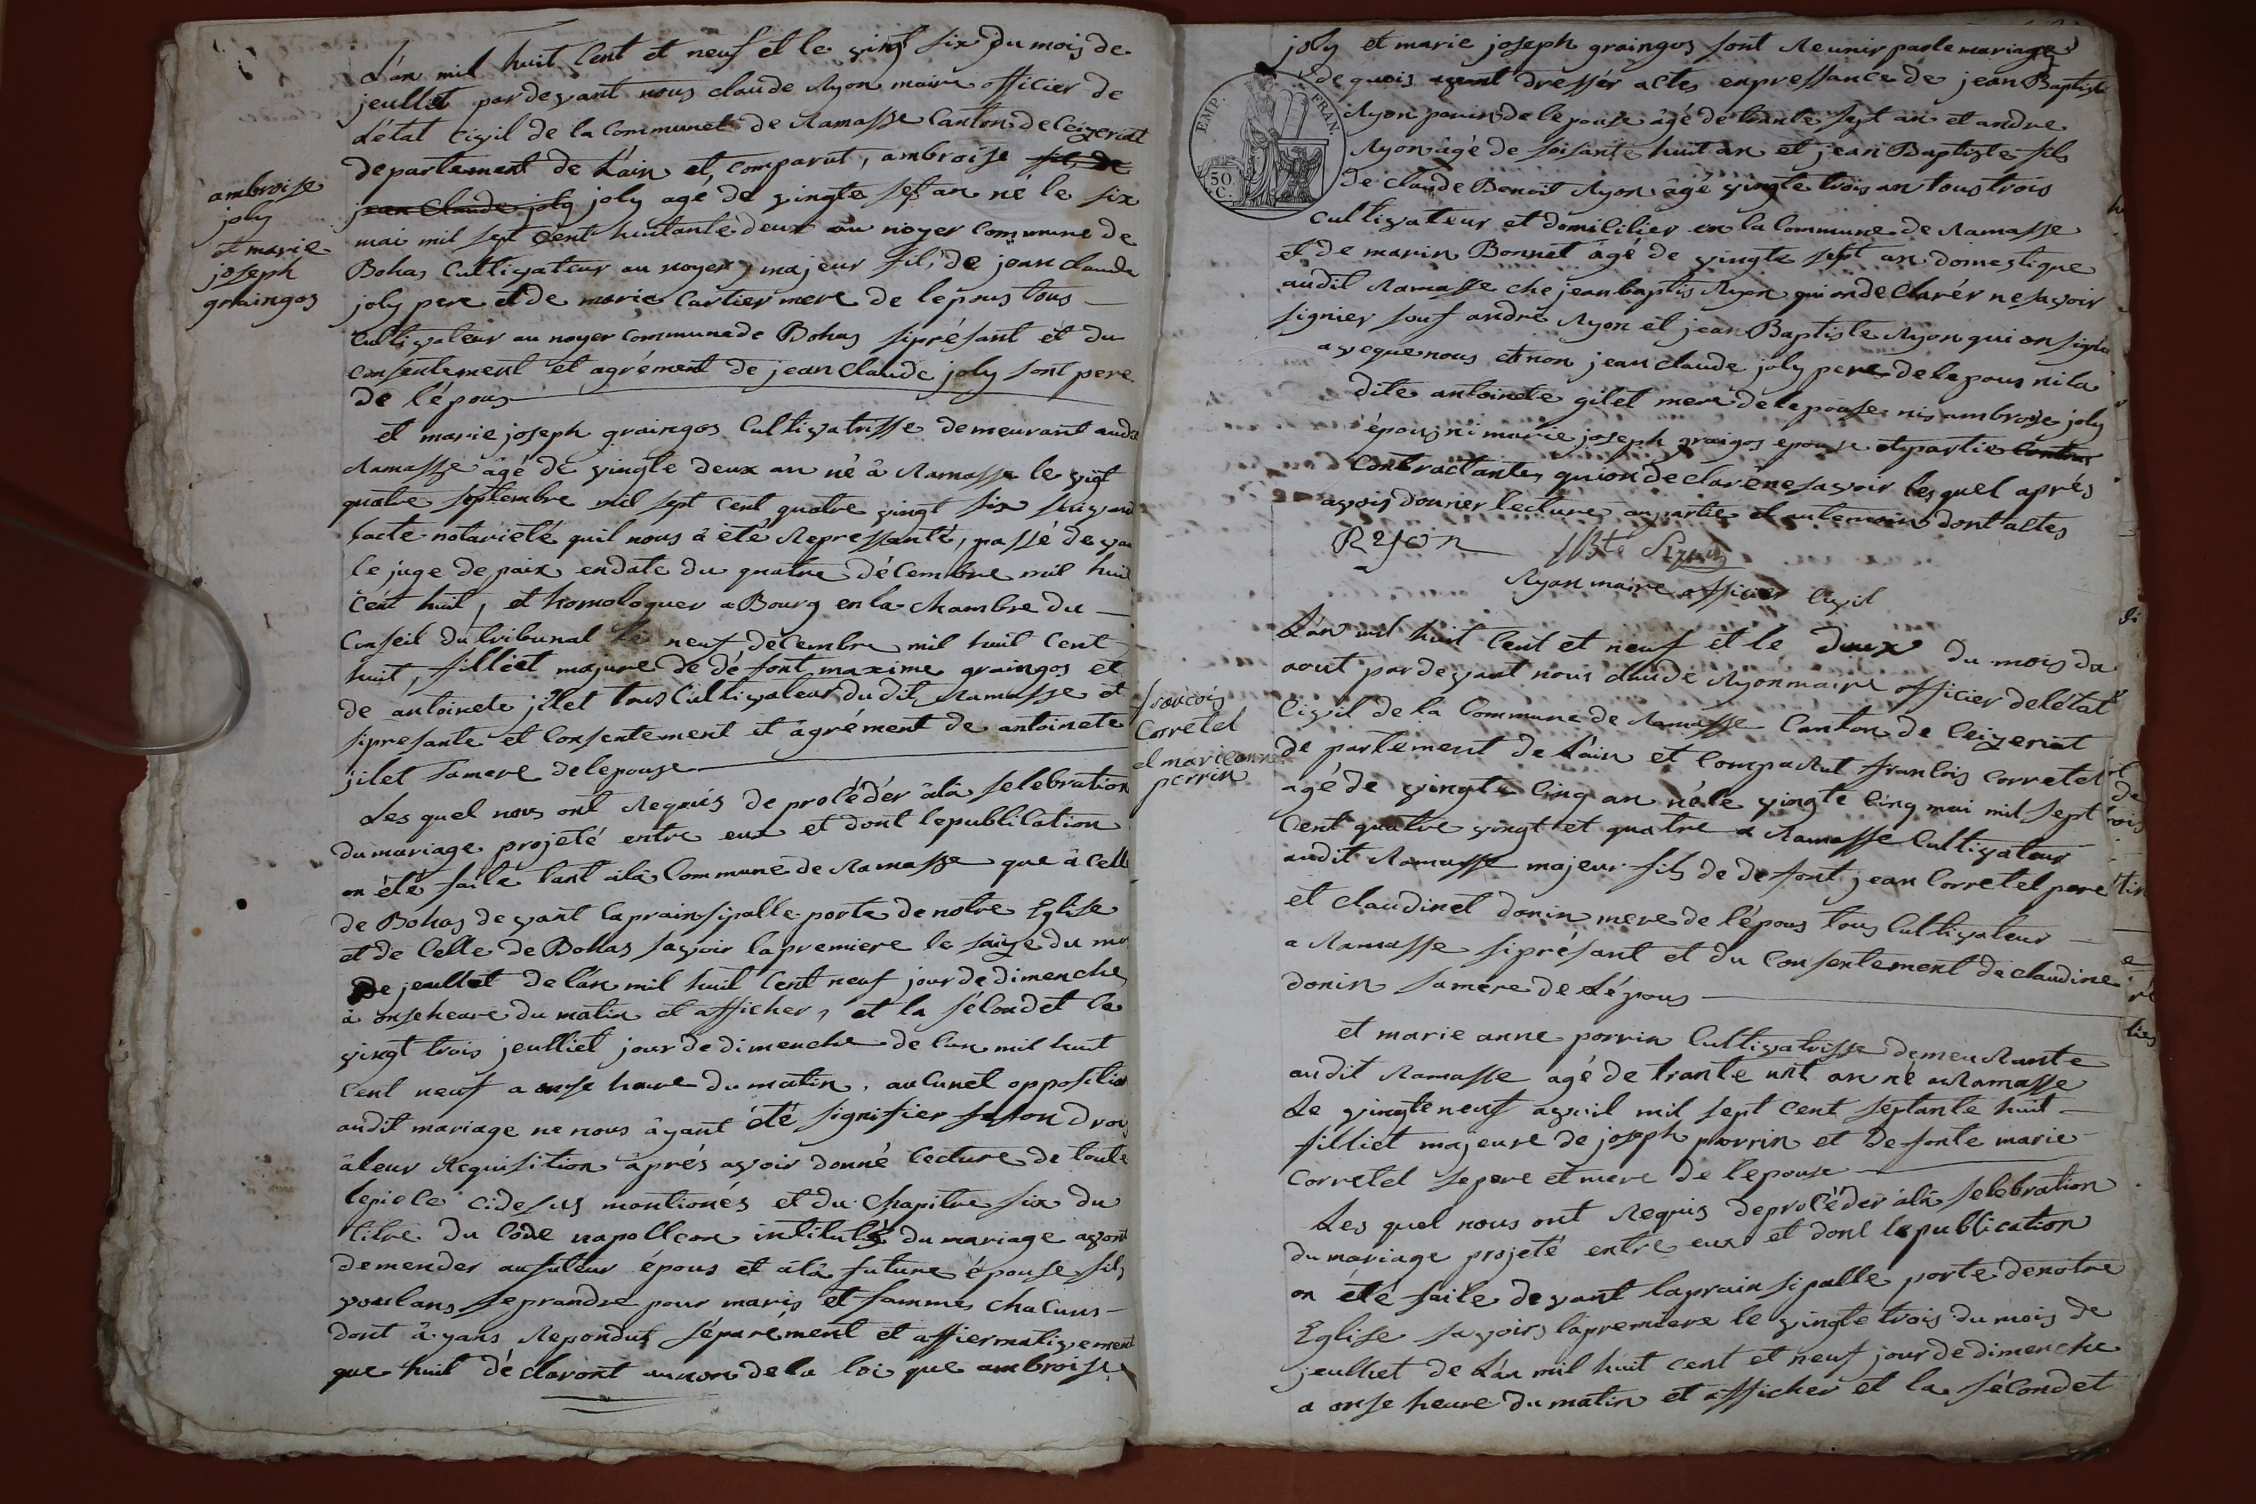 L'an mil huit Cent et neuf et le vingt six du mois de
jeullet par devant nous claude Ryon maire officier de
L'état Civil de la Communet de Ramasse Canton de Ceizeriat
departement de L'ain et, comparut, ambroise fils de
jean Claude joly joly agé de vingte set an né le six
mai mil sept Cent huitante deux au noyer Commune de
Bohas Cultivateur au noyer, majeur fils de jean claude
joly pere et de marie Cartier mere de lepous tous
Cultivateur au noyer Commune de Bohas siprésant et du
Consentement et agrément de jean Claude joly sont pere
de l'épous
ambroise
joly
et marie
joseph
graingos
et marie joseph graingos Cultivatrisse demeurant audit
Ramasse âgé de vingte deux an né à Ramasse le vigt
quatre septembre mil sept cent quatre vingt six suivand
lacte notariété quil nous à été Repressanté, passé devan
le juge de paix endate du quatre décembre mil huit
Cent huit, et homologuer a Bourg en la Chambre du
Conseil du tribunal le neuf décembre mil huit Cent
huit, filliet majure de défont maxime graingos et
de antoinete jilet tous Cultivateur dudit Ramasse et
sipresante et Consentement et agrément de antoinete
jilet samere delepouse
Les quel nous ont Requis de procédér âla selebration
du mariage projeté entre eux et dont lepublication
on été faite tant ala Commune de Ramasse que à Celle
de Bohas devant laprainsipalle porte de notre Eglise
et de Celle de Bohas savoir lapremiere le saize du moi
de jeullet de l'an mil huit Cent neuf jour de dimenche
à onse heure du matin et afficher, et la sécondet le
vingt trois jeulliet jour de dimenche de l'an mil huit
Cent neuf a onse heure du matin, auCunet opposition
audit mariage ne nous âyant été signifier faison droi
âleur Requisition âprés avoir donné lecture de toute
lepiece cidesus montionés et du Chapitre six du
titre du Code napolleon intitulés du mariage avont
demender aufuteur épous et âla future épouse sils
voulans seprandre pour maris et fammes chacuns
dont â yans Repondus séparément et affiermativement
que huil déclaront aunon de la loi que ambroise
joly et marie joseph graingos sont Reunir par le mariage
de quois avont dressér actes enpressance de jean Baptiste
Ryon parin de lepouse âgé de trante sept an et andre
Ryon âgé de soisante huit an et jean Baptiste fils
de claude Benoit Ryon âgé vingte trois an tous trois
Cultivateur et domicilier en la Commune de Ramasse
et de marin Bonnet âgé de vingte sept an domestique
audit Ramasse che jean baptis Ryon qui ondeClarér ne savoir
signier souf andré Ryon et jean Baptiste Ryon qui on signé
aveque nous et non jean claude joly pere de lepous nila
dite antoinete gilet mere de lepouse nis ambroise joly
épous ni marie joseph graigos epouse etpartie
Contractantes quion déclaréne savoir lesquel aprés
avoir donnér lecture aupartie et autemoin dont actes
EMP. FRAN.
50 C.
Ryon
Ryon maire officier Civil
L'an mil huit Cent et neuf et le deux du mois du
aout par devant nous claude Ryon maire officier de létat
Civil de la Commune de Ramasse Canton de Ceizeriat
departement de L'ain et Comparut francois Corretel
agé de vingte Cinq an né le vingte Cinq mai mil sept
Cent quatre vingt et quatre a Ramasse Cultivateur
audit Ramasse majeur fils de defont jean Corretel pere
et claudinet donin mere de l'épous tous Cultivateur
a Ramasse siprésant et du Consentement de claudine
donin samere de L'épous
francois
Corretel
et marieanne
perrin
et marie anne porrin Cultivatrisse demeuRante
audit Ramasse agé de trante unt an né a Ramasse
Le vingte neuf avril mil sept Cent septante huit
filliet majeure de joseph porrin et defonte marie
Corretel sepere et mere de lepouse
Les quel nous ont Requis deprocéder àla selebration
du mariage projeté entre eux et dont lepublication
on été faite devant laprain sipalle porte denotre
Eglise savoirs lapremiere le vingte trois du mois de
jeulliet de L'an mil huit cent et neuf jour de dimenche
a onse heure du matin et afficher et la sécondet